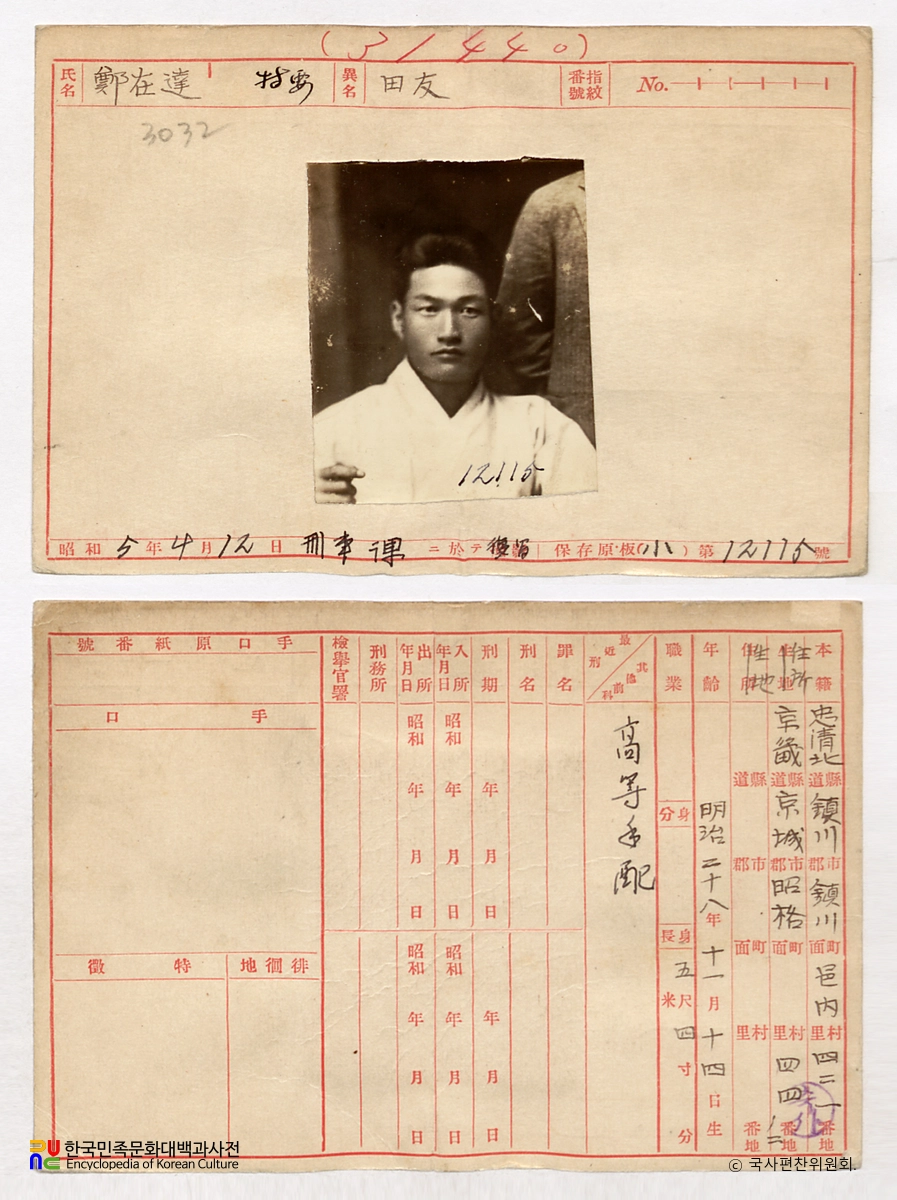 (31440)
氏名 鄭在達 特要 異名 田友 指紋番號 No.
3032
12115
昭和5年4月12日 刑事課ニ於テ 保存原板(小)第12115號
本籍 忠清北道縣 鎮川郡市 鎮川面町 邑内里村 四二一番地
住所 京畿道縣 京城郡市 昭格面町 里村 四四ノ二番地
道縣 郡市 面町 里村 番地
年齡 明治二十八年十一月十四日生
職業
身分
身長 五尺四寸分
米
最近刑其他前科
高等手配
罪名
刑名
刑期 年月日 年月日
入所年月日 昭和年月日 昭和年月日
出所年月日 昭和年月日 昭和年月日
刑務所
檢擧官署
手口原紙番號
手口
徘徊地
特徵
한국민족문화대백과사전
Encyclopedia of Korean Culture
© 국사편찬위원회.